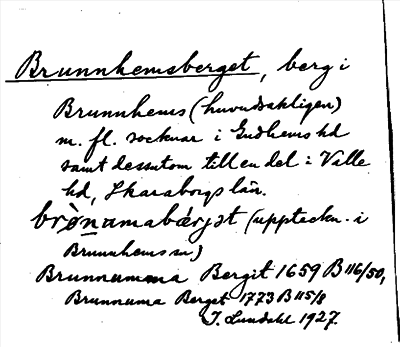 Brunnhemsberget, berg i
Brunnhems (huvudsakligen)
m. fl. socknar i Gudhems hd
samt dessutom till en del i Valle
hd, Skaraborgs län.
brònamabærjət (uppteckn. i
Brunnhems sn)
Brunnumma Bergit 1659 B 116/50,
Brunnuma Berget 1773 B 115/8
J. Lundahl 1927.